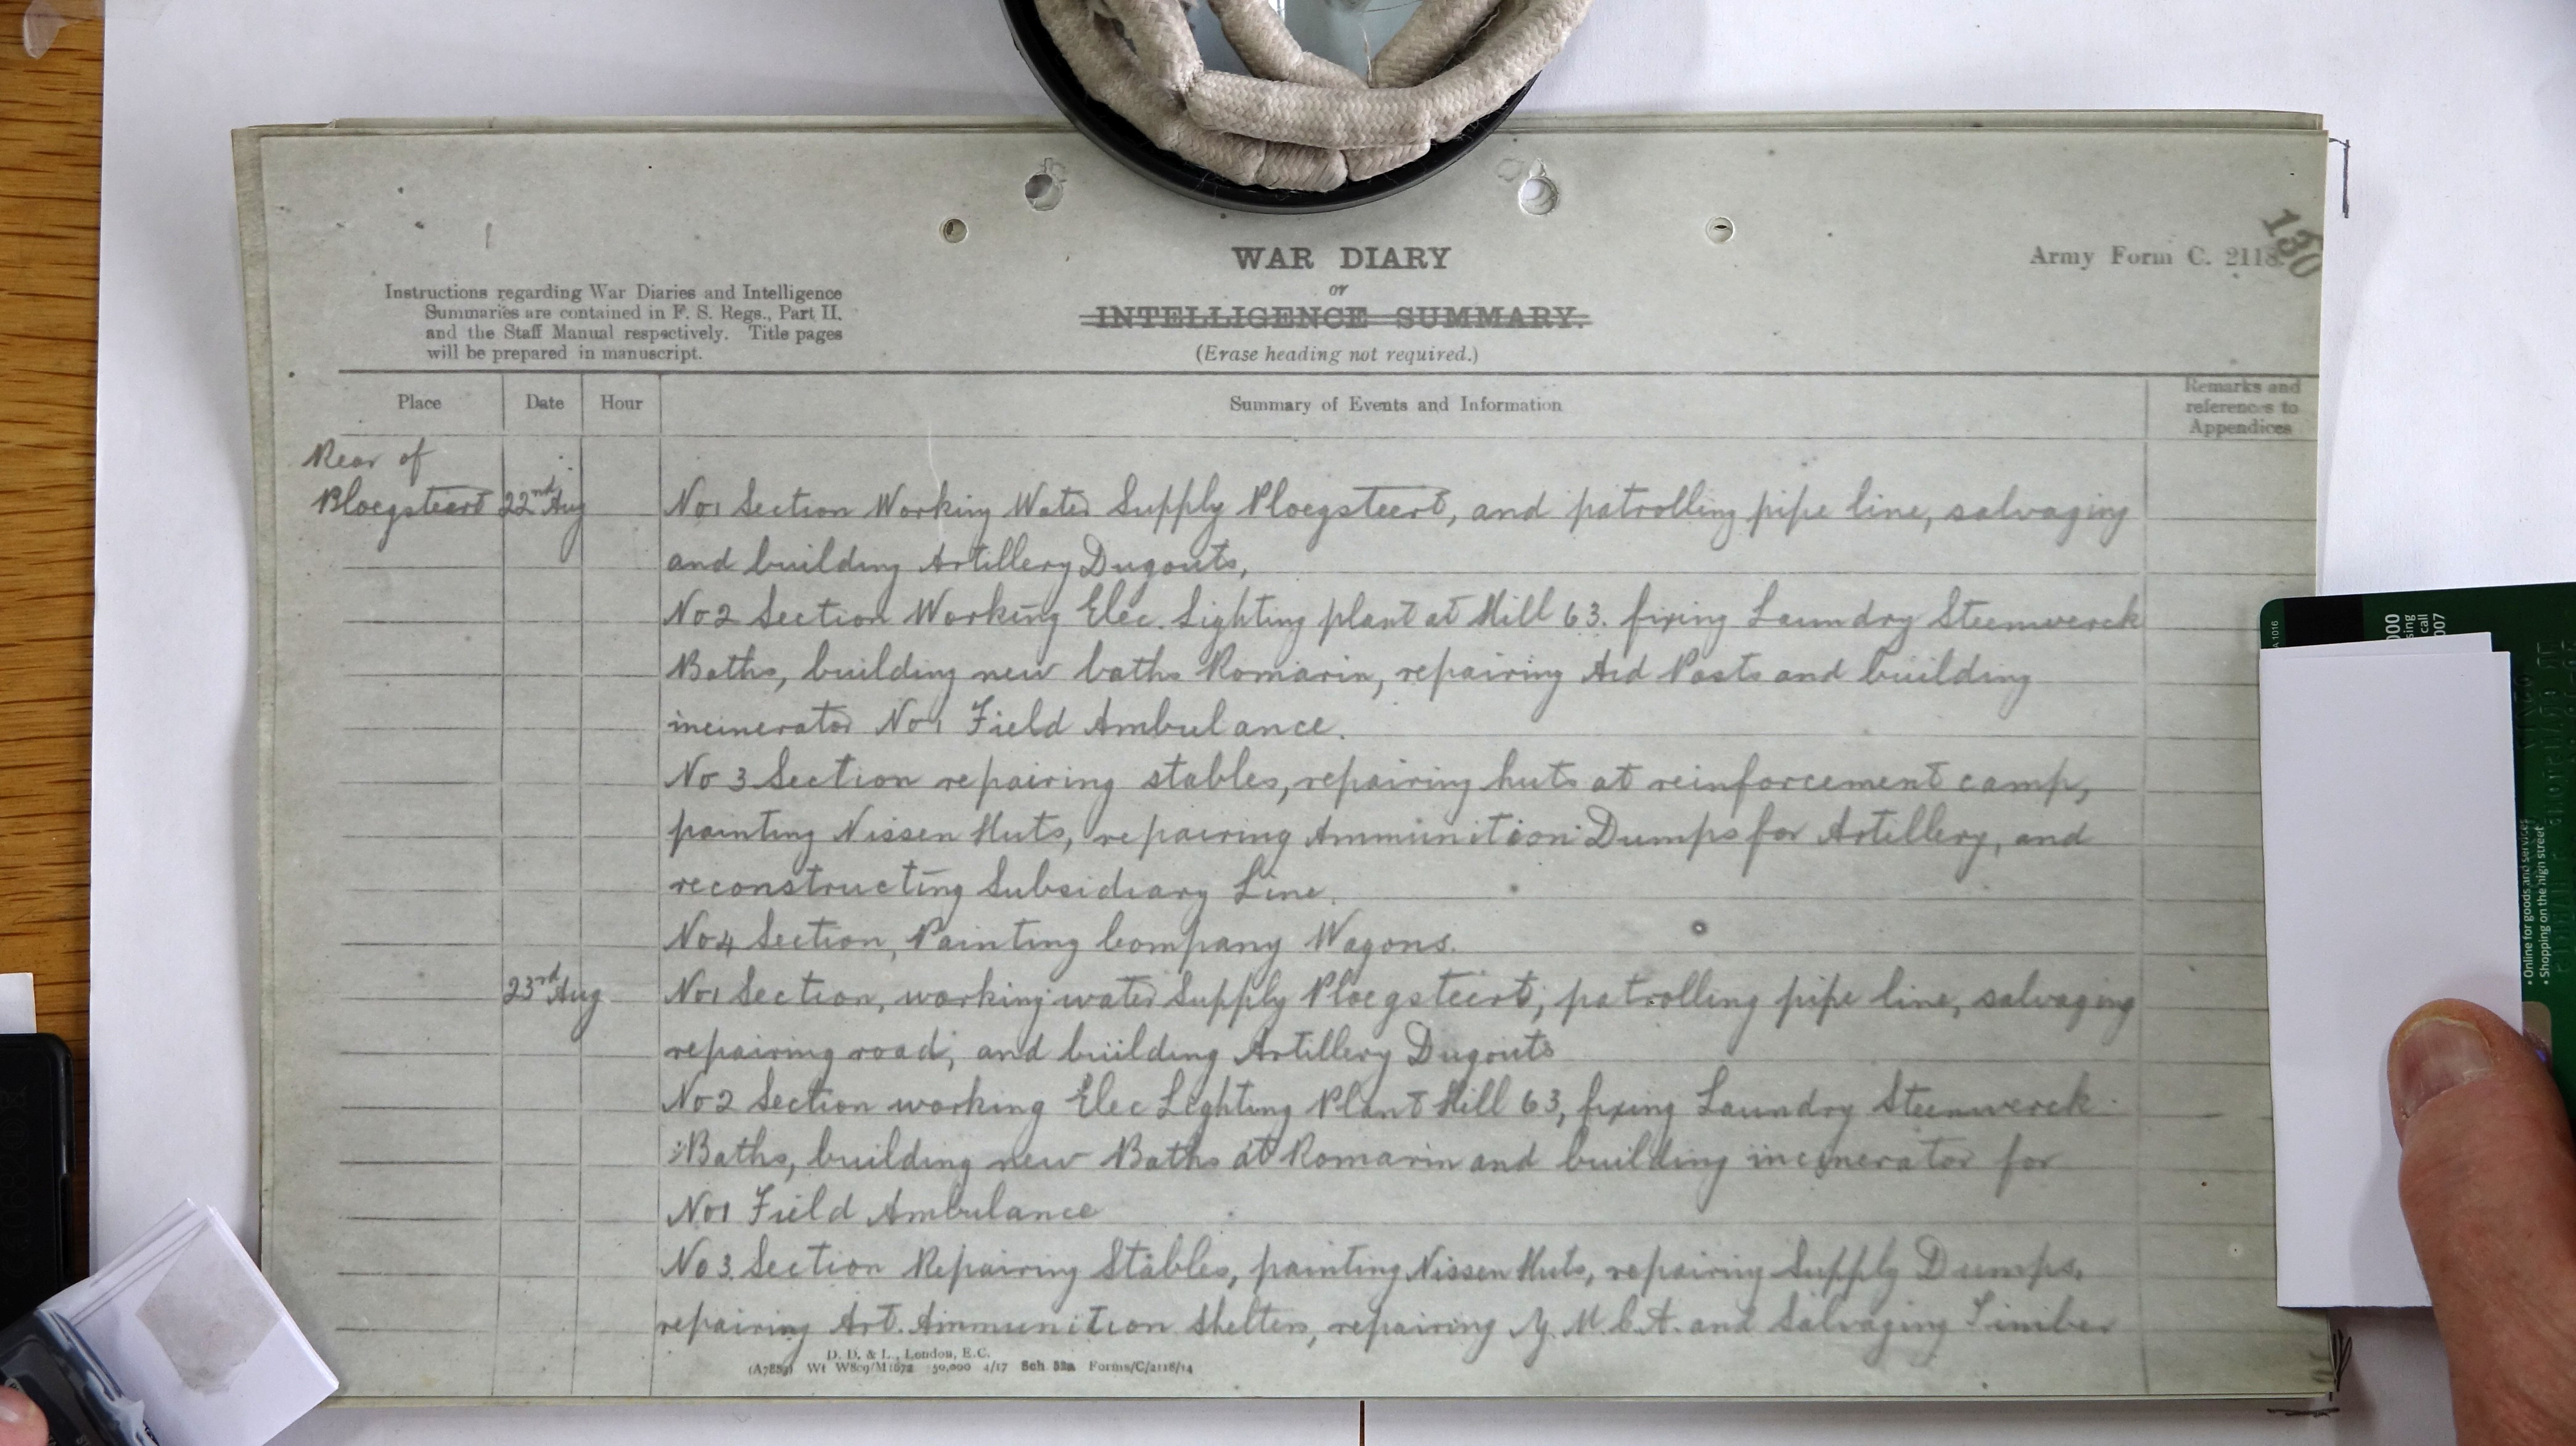 130
WAR DIARY
Army Form C. 2118.
or
Instructions regarding War Diaries and Intelligence
Summaries are contained in F. S. Regs., Part II.
and the Staff Manual respectively. Title pages
will be prepared in manuscript.
INTELLIGENCE SUMMARY.
(Erase heading not required.)
Place Date Hour Summary of Events and Information Remarks and references to Appendices
Rear of
Ploegsteert 22nd Aug No1 Section Working Water Supply Ploegsteert, and patrolling pipe line, salvaging
and building Artillery Dugouts,
No2 Section Working Elec. Lighting plant at Hill 63. fixing Laundry Steenwerck
Baths, building new baths Romarin, repairing Aid Posts and building
incinerator No1 Field Ambulance.
No 3 Section repairing stables, repairing huts at reinforcement camp,
painting Nissen Huts, repairing Ammunition Dumps for Artillery, and
reconstructing Subsidiary Line.
No4 Section, Painting Company Wagons.
23rd Aug No1 Section, working water Supply Ploegsteert, patrolling pipe line, salvaging
repairing road, and building Artillery Dugouts
No2 Section working Elec Lighting Plant Hill 63, fixing Laundry Steenwerck
Baths, building new Baths at Romarin and building incinerator for
No1 Field Ambulance
No3. Section Repairing Stables, painting Nissen Huts, repairing Supply Dumps,
repairing Art. Ammunition Shelters, repairing Y.M.C.A. and Salvaging Timber
D. D. & L., London, E.C.
(A7889) Wt W809/M1672 50,000 4/17 Sch 52a Forms/C/2118/14
000
sing
call
007
A 1016
• Online for goods and services
• Shopping on the high street